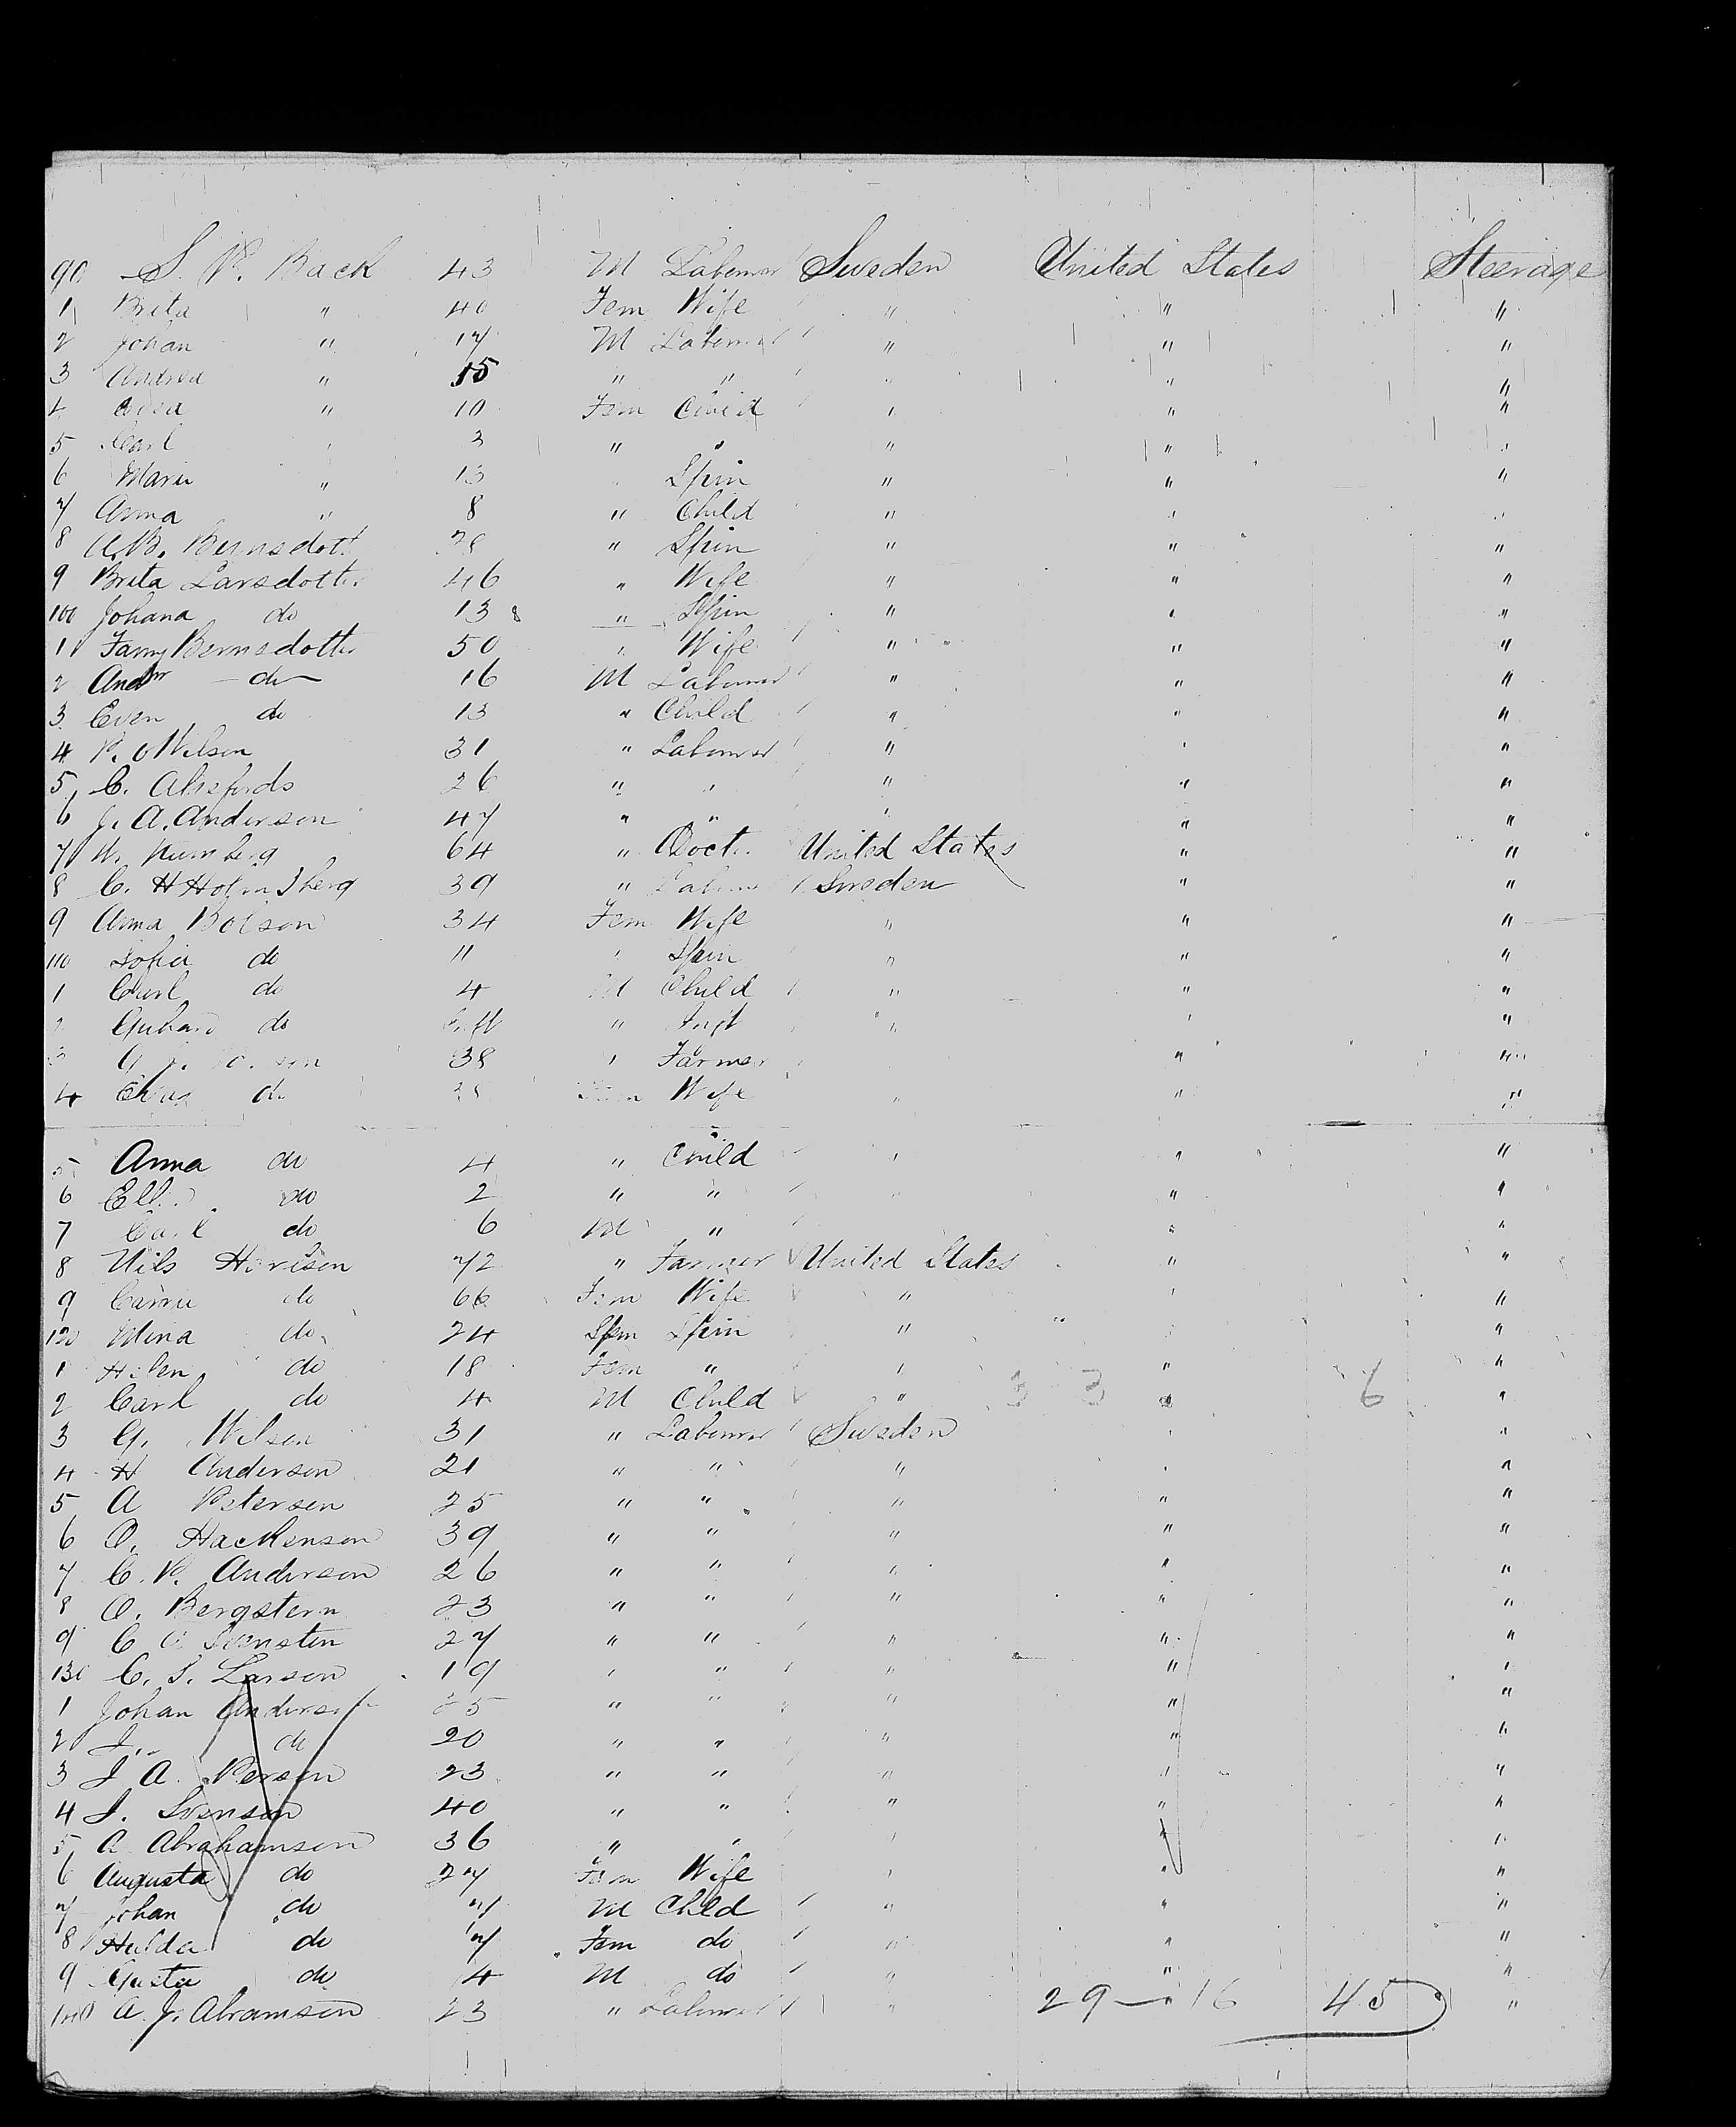 90 S. P. Back 43 M Labourer Sweden United States Steerage
1 Brita " 40 Fem Wife " " "
2 Johan " 17 M Labourer " " "
3 Andrea " 15 " " " " "
4 " 10 Fem Child " " "
5 Carl " 3 " " " " "
6 Maria " 13 " Spin " " "
7 Anna " 8 " Child " " "
8 A. B. Bernsdott " Spin " " "
9 Brita Larsdotter 46 " Wife " " "
100 Johana do 13 " Spin " " "
1 Fanny Bernsdotter 50 " Wife " " "
2 And do 16 M Labourer " " "
3 Even do 13 " Child " " "
4 P. O Nilson 31 " Labourer " " "
5 C. 26 " " " " "
6 J. A. Anderson 47 " " " " "
7 64 " Doct. United States " "
8 C. H 39 " Labourer Sweden " "
9 Anna Bolson 34 Fem Wife " " "
110 Sofia do 11 " Spin " " "
1 Carl do 4 M Child " " "
2 do " Inft " " "
3 38 " Farmer " "
4 do Fem Wife " " "
5 Anna do 4 " Child " " "
6 do 2 " " " " "
7 Carl do 6 M " " "
8 Nils 72 " Farmer United States " "
9 Carrie do 66 Fem Wife " " "
120 Mina do 24 Spin " " "
1 Helen do 18 Fem " " " "
2 Carl do 4 M Child " 3 3 " 6 "
3 G. Nilson 31 " Labourer Sweden " "
4 H Anderson 21 " " " " "
5 A Petersen 25 " " " " "
6 O. Hackenson 39 " " " " "
7 C. P. Anderson 26 " " " " "
8 O. Bergstern 23 " " " " "
9 C 27 " " " " "
130 C. S. Larson 19 " " " " "
1 Johan 25 " " " " "
2 J. do 20 " " " " "
3 J A. Person 23 " " " " "
4 J. Svenson 40 " " " " "
5 A Abrahamson 36 " " " " "
6 Augusta do 27 Fem Wife " " "
7 Johan do 7 M Chld " " "
8 Hulda do 7 Fem do " " "
9 Gusta do 4 M do " " "
140 A. J. Abramson 23 " Labourer " 29 — 16 45 "